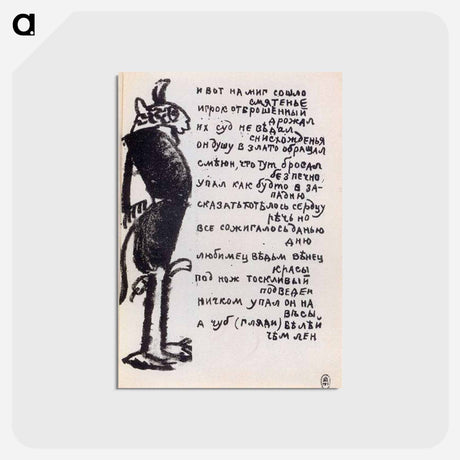 a
и вот на миг сошло
смятенье
игрок отброшенный
дрожал
их суд не вѣдал
снисхожденья
он душу в злато обращал
смѣюн, что тут бросал
безпечно,
упал как будто в за-
падню
сказать хотѣлось сердцу
рѣчь но
все сожигалось данью
дню
любимец вѣдьм вѣнец
красы
под нож тоскливый
подведен
ничком упал он на
вѣсы
а чуб (гляди) бѣлѣй
чѣм лен